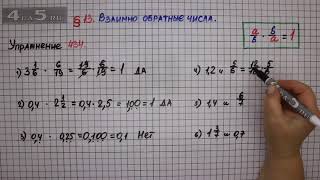 § 13. Взаимно обратные числа.
a/b · b/a = 1
Упражнение 434.
1) 3 1/6 · 6/19 = 19/6 · 6/19 = 1 Да
2) 0,4 · 2 1/2 = 0,4 · 2,5 = 1,00 = 1 Да
3) 0,4 · 0,25 = 0,100 = 0,1 Нет
4) 1,2 и 5/6 =
5) 1,4 и 6/7
6) 1 3/7 и 0,7